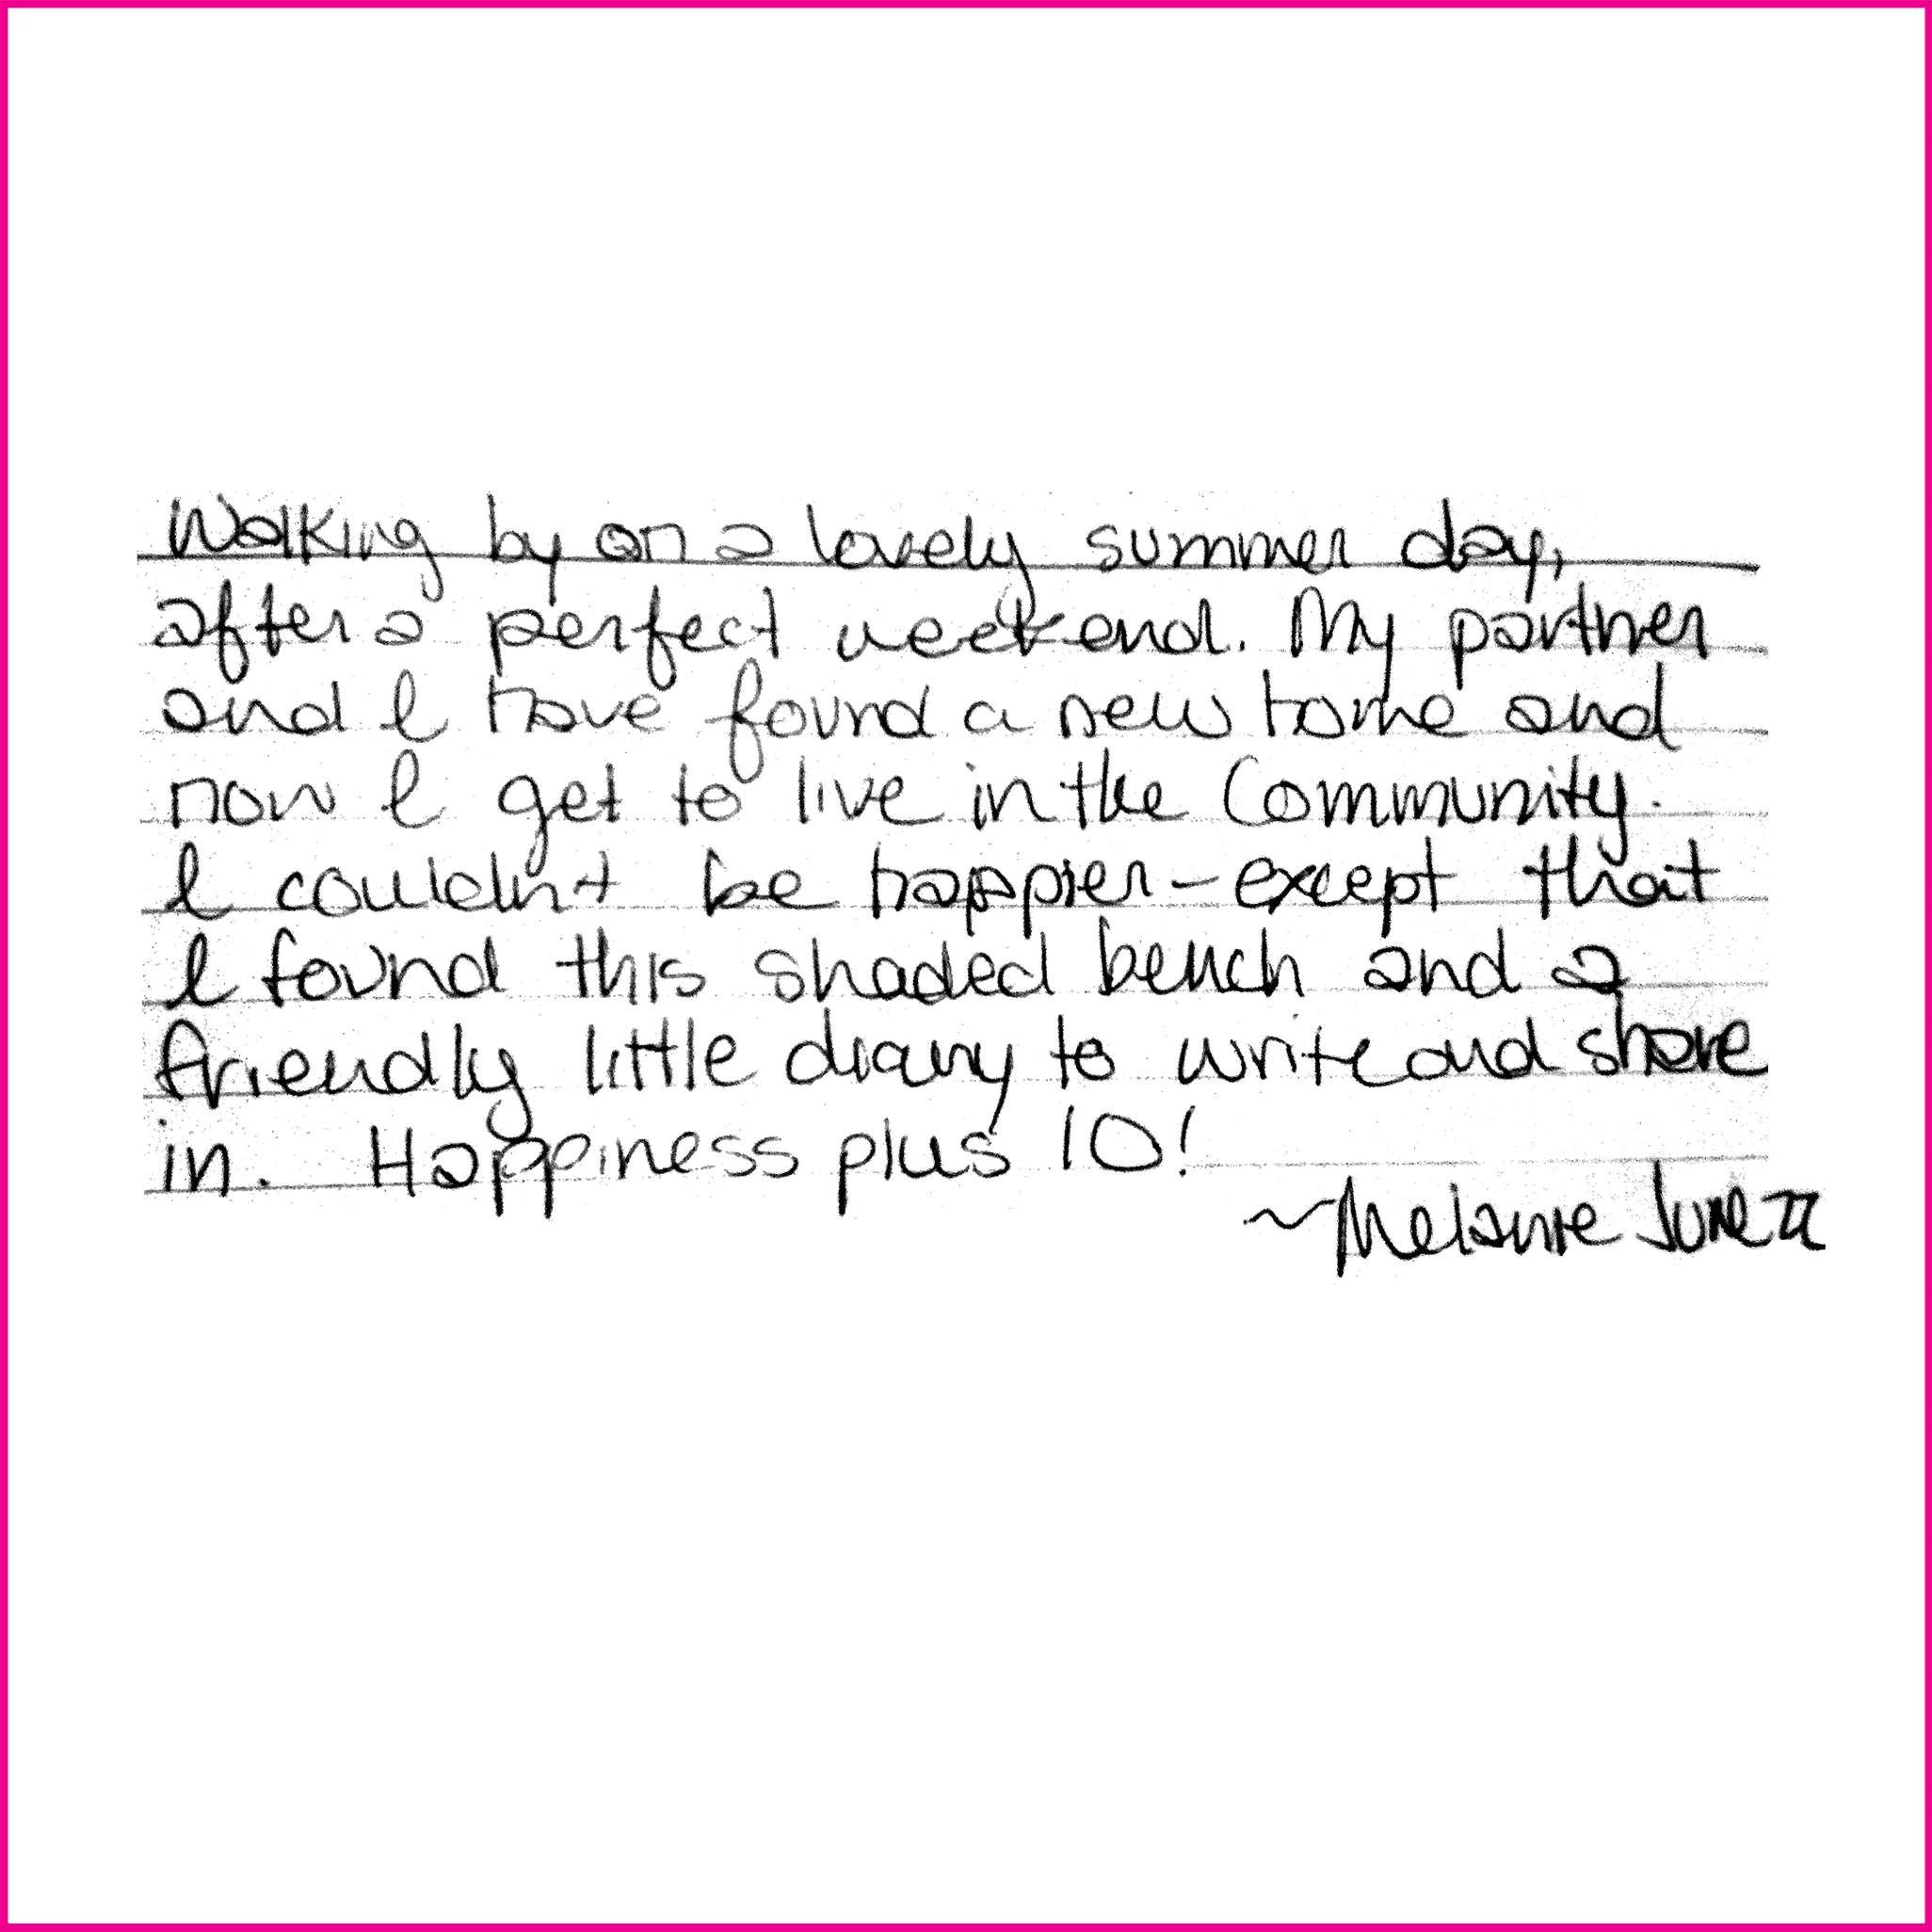 Walking by on a lovely summer day,
after a perfect weekend. My partner
and I have found a new home and
now I get to live in the Community.
I couldn't be happier - except that
I found this shaded bench and a
friendly little diary to write and share
in. Happiness plus 10!
~Melanie June 22